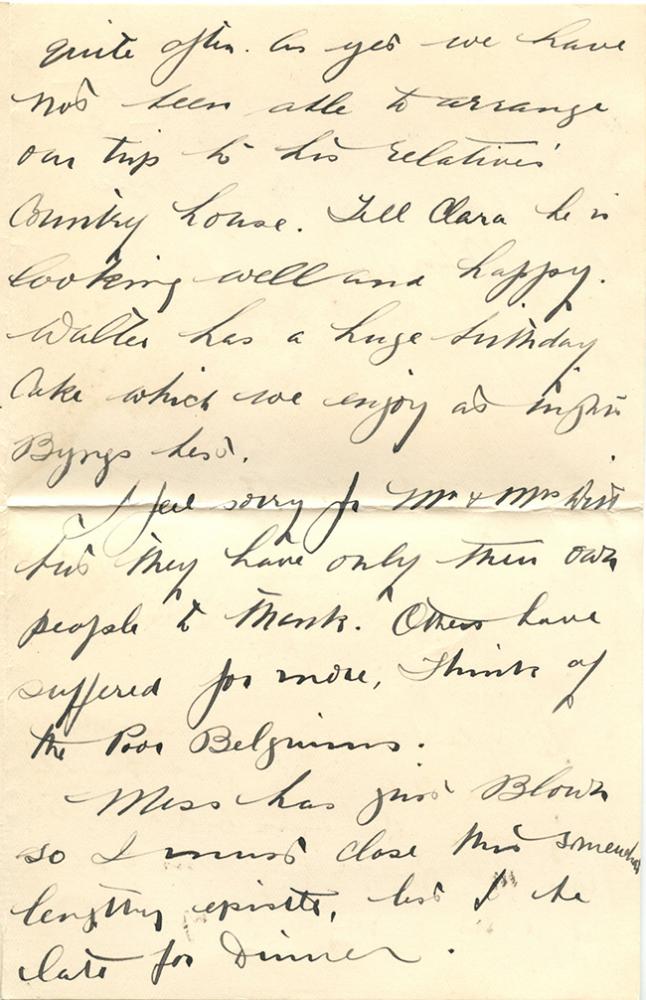 quite often. As yet we have
not been able to arrange
our trip to his relatives
Country house. Tell Clara he is
looking well and happy.
Walter has a huge birthday
Cake which we enjoy at night
Byngs best.
I feel sorry for Mr & Mrs Witt
but they have only their own
people to thank. Others have
suffered far more, I think of
the Poor Belgiums.
Mess has just Blown
so I must close this somewhat
lengthy epistle, lest I be
late for Dinner.